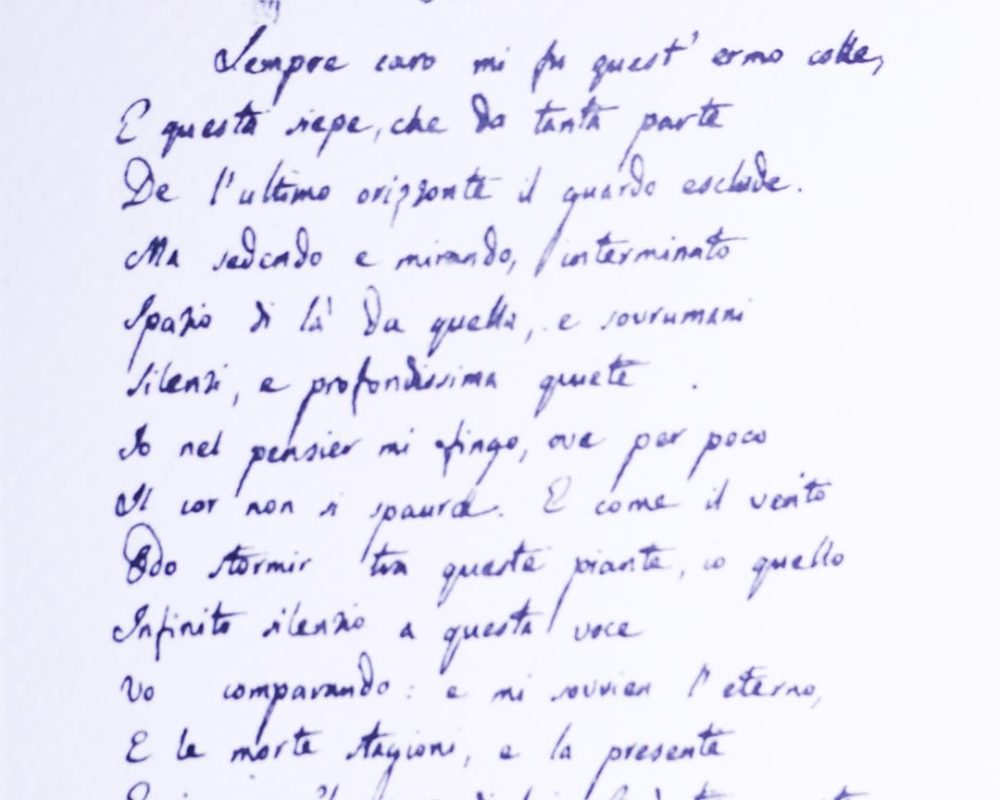 Sempre caro mi fu quest' ermo colle,
E questa siepe, che da tanta parte
De l'ultimo orizzonte il guardo esclude.
Ma sedendo e mirando, interminato
Spazio di là da quella, e sovrumani
Silenzi, e profondissima quiete .
Io nel pensier mi fingo, ove per poco
Il cor non si spaura. E come il vento
Odo stormir tra queste piante, io quello
Infinito silenzio a questa voce
Vo comparando: e mi sovvien l'eterno,
E le morte stagioni, e la presente